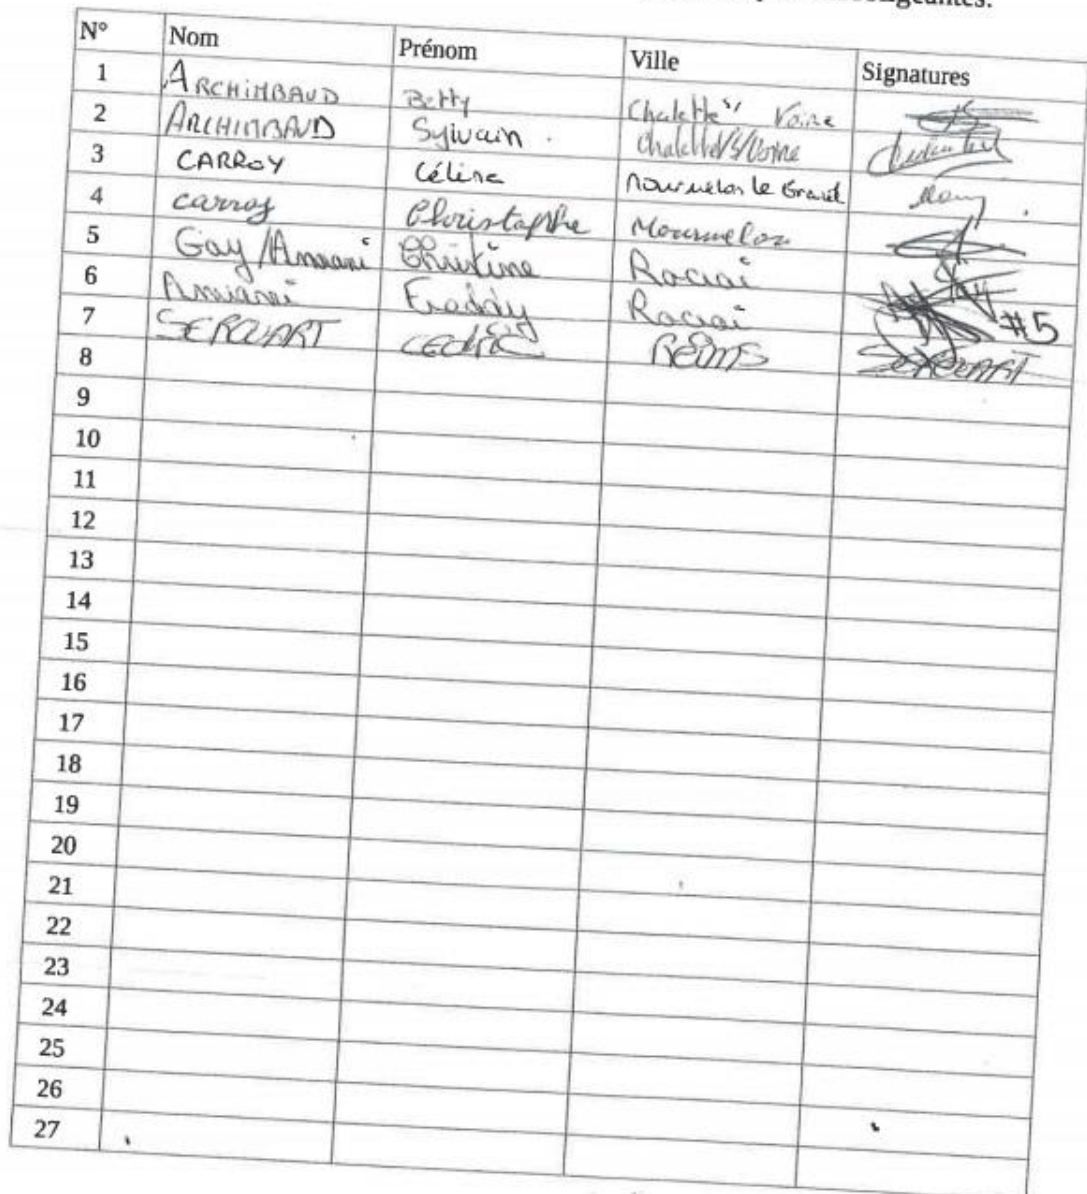 N° Nom Prénom Ville Signatures
1 ARCHIMBAUD Betty Chalette s/ Voire
2 ARCHIMBAUD Sylvain Chalette/S/Voire
3 CARROY Céline Mourmelon le Grand
4 carroy Christophe Mourmelon
5 Gay / Christine
6
7 #5
8 CEDRIC REIMS
9
10
11
12
13
14
15
16
17
18
19
20
21
22
23
24
25
26
27